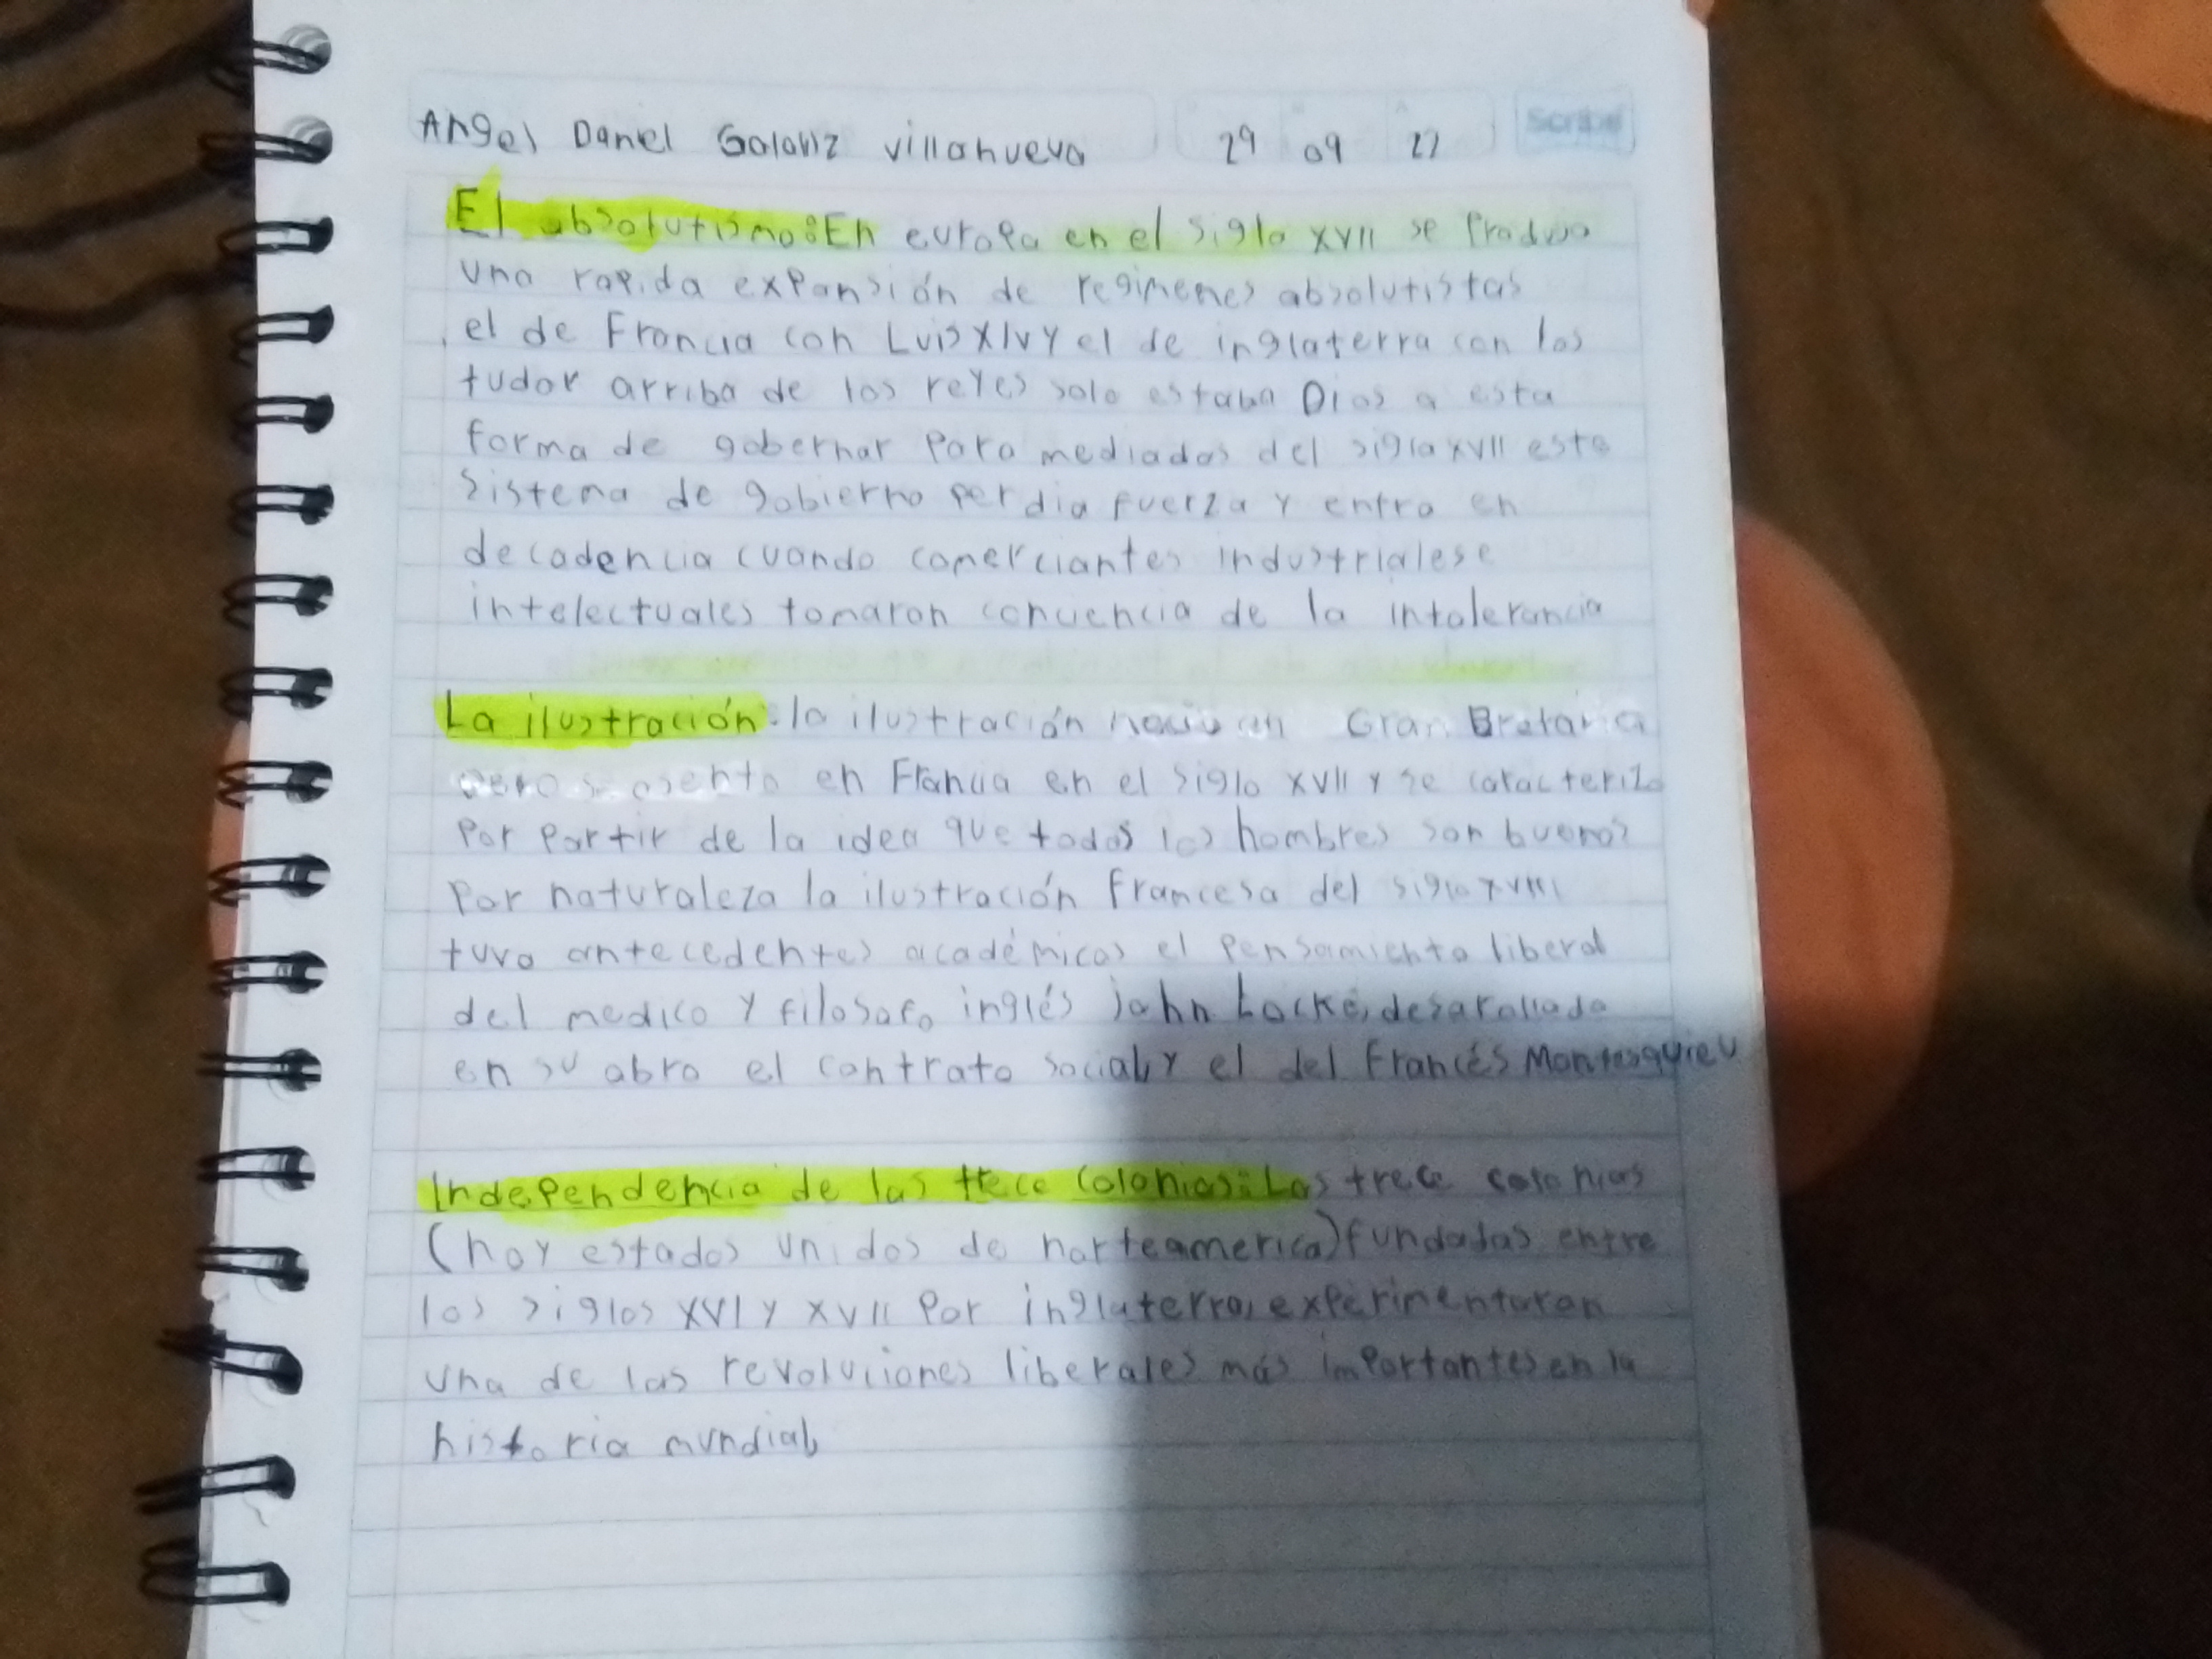 Angel Daniel Galaviz villanueva 29 09 22 Scribe
El absolutismo: En europa en el siglo XVII se produjo
una rapida expansión de regimenes absolutistas
el de Francia con Luis XIV y el de inglaterra con los
tudor arriba de los reyes solo estaba Dios a esta
forma de gobernar para mediados del siglo XVII este
sistema de gobierno perdia fuerza y entro en
decadencia cuando comerciantes industriales e
intelectuales tomaron conuencia de la intolerancia
La ilustración: la ilustración nacio en Gran Bretaña
pero se asento en Francia en el siglo XVII y se caracterizo
por partir de la idea que todos los hombres son buenos
por naturaleza la ilustración francesa del siglo XVIII
tuvo antecedentes académicos el pensamiento liberal
del medico y filosofo inglés john Locke, desarollado
en su obra el contrato social, y el del francés Montesquieu
Independencia de las trece colonias: Las trece colonias
(hoy estados unidos de norteamerica) fundadas entre
los siglos XVI y XVII por inglaterra, experimentaron
una de las revoluciones liberales más importantes en la
historia mundial,